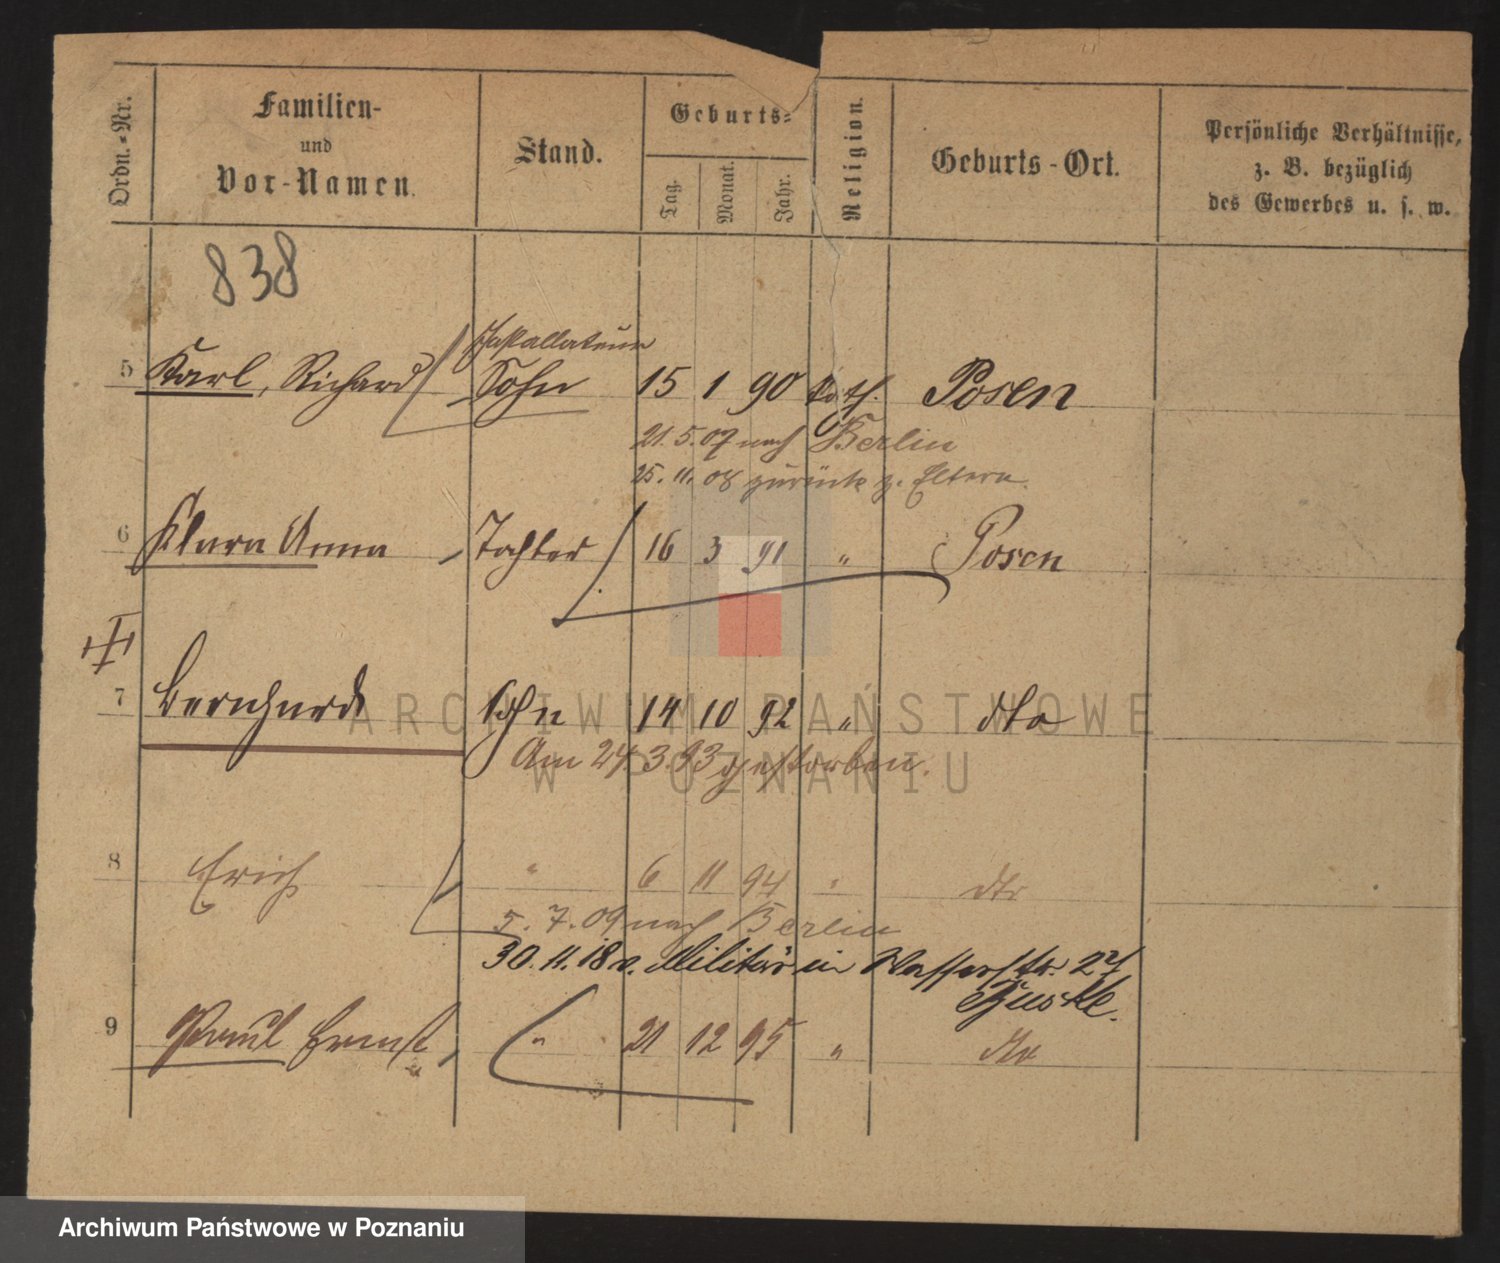 Ordn.-Nr. Familien- und Vor-Namen. Stand. Geburts- Tag. Monat. Jahr. Religion. Geburts-Ort. Persönliche Verhältnisse, z. B. bezüglich des Gewerbes u. s. w.
838
Installateur
5 Karl, Richard Sohn 15 1 90 kath. Posen
21. 5. 07 nach Berlin
25. 11. 08 zurück z. Eltern.
6 Klara Anna Tochter 16 3 91 " Posen
7 Bernhard Sohn 14 10 92 " dto
Am 24 3. 93 gestorben.
8 Erich " 6 11 94 " dto
5. 7. 09 nach Berlin
30. 11. 18 v. Militär in Wasserstr. 27
9 Paul Ernst " 21 12 95 " dto
ARCHIWUM PAŃSTWOWE
W POZNANIU
Archiwum Państwowe w Poznaniu